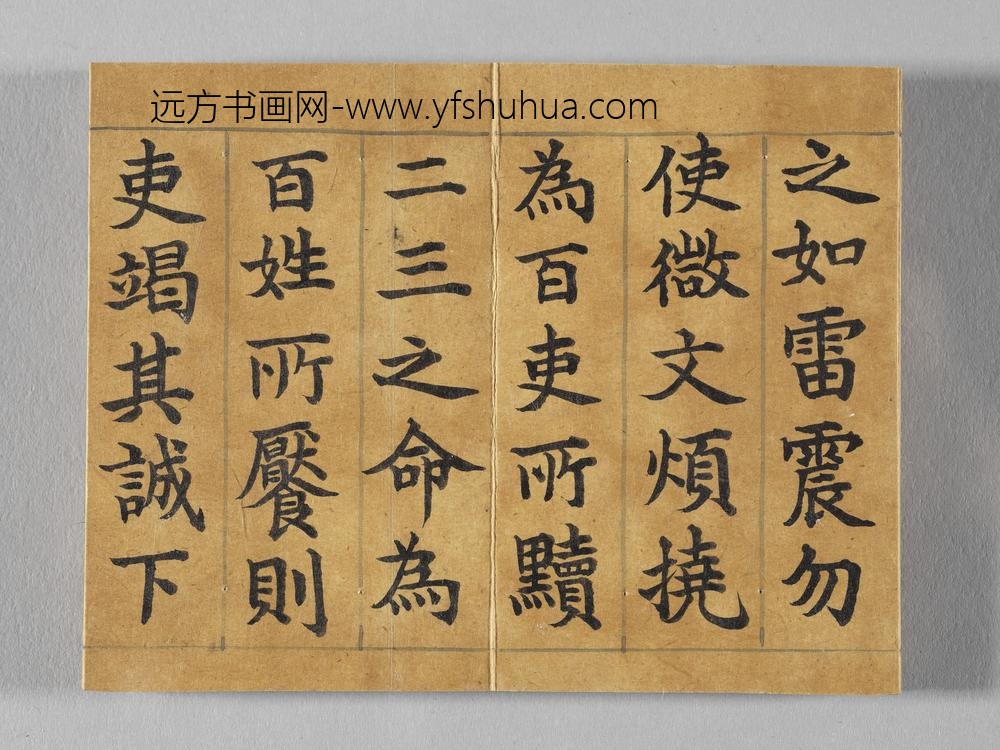 远方书画网-www.yfshuhua.com
之如雷震勿
使微文煩撓
為百吏所黷
二三之命為
百姓所饜則
吏竭其誠下